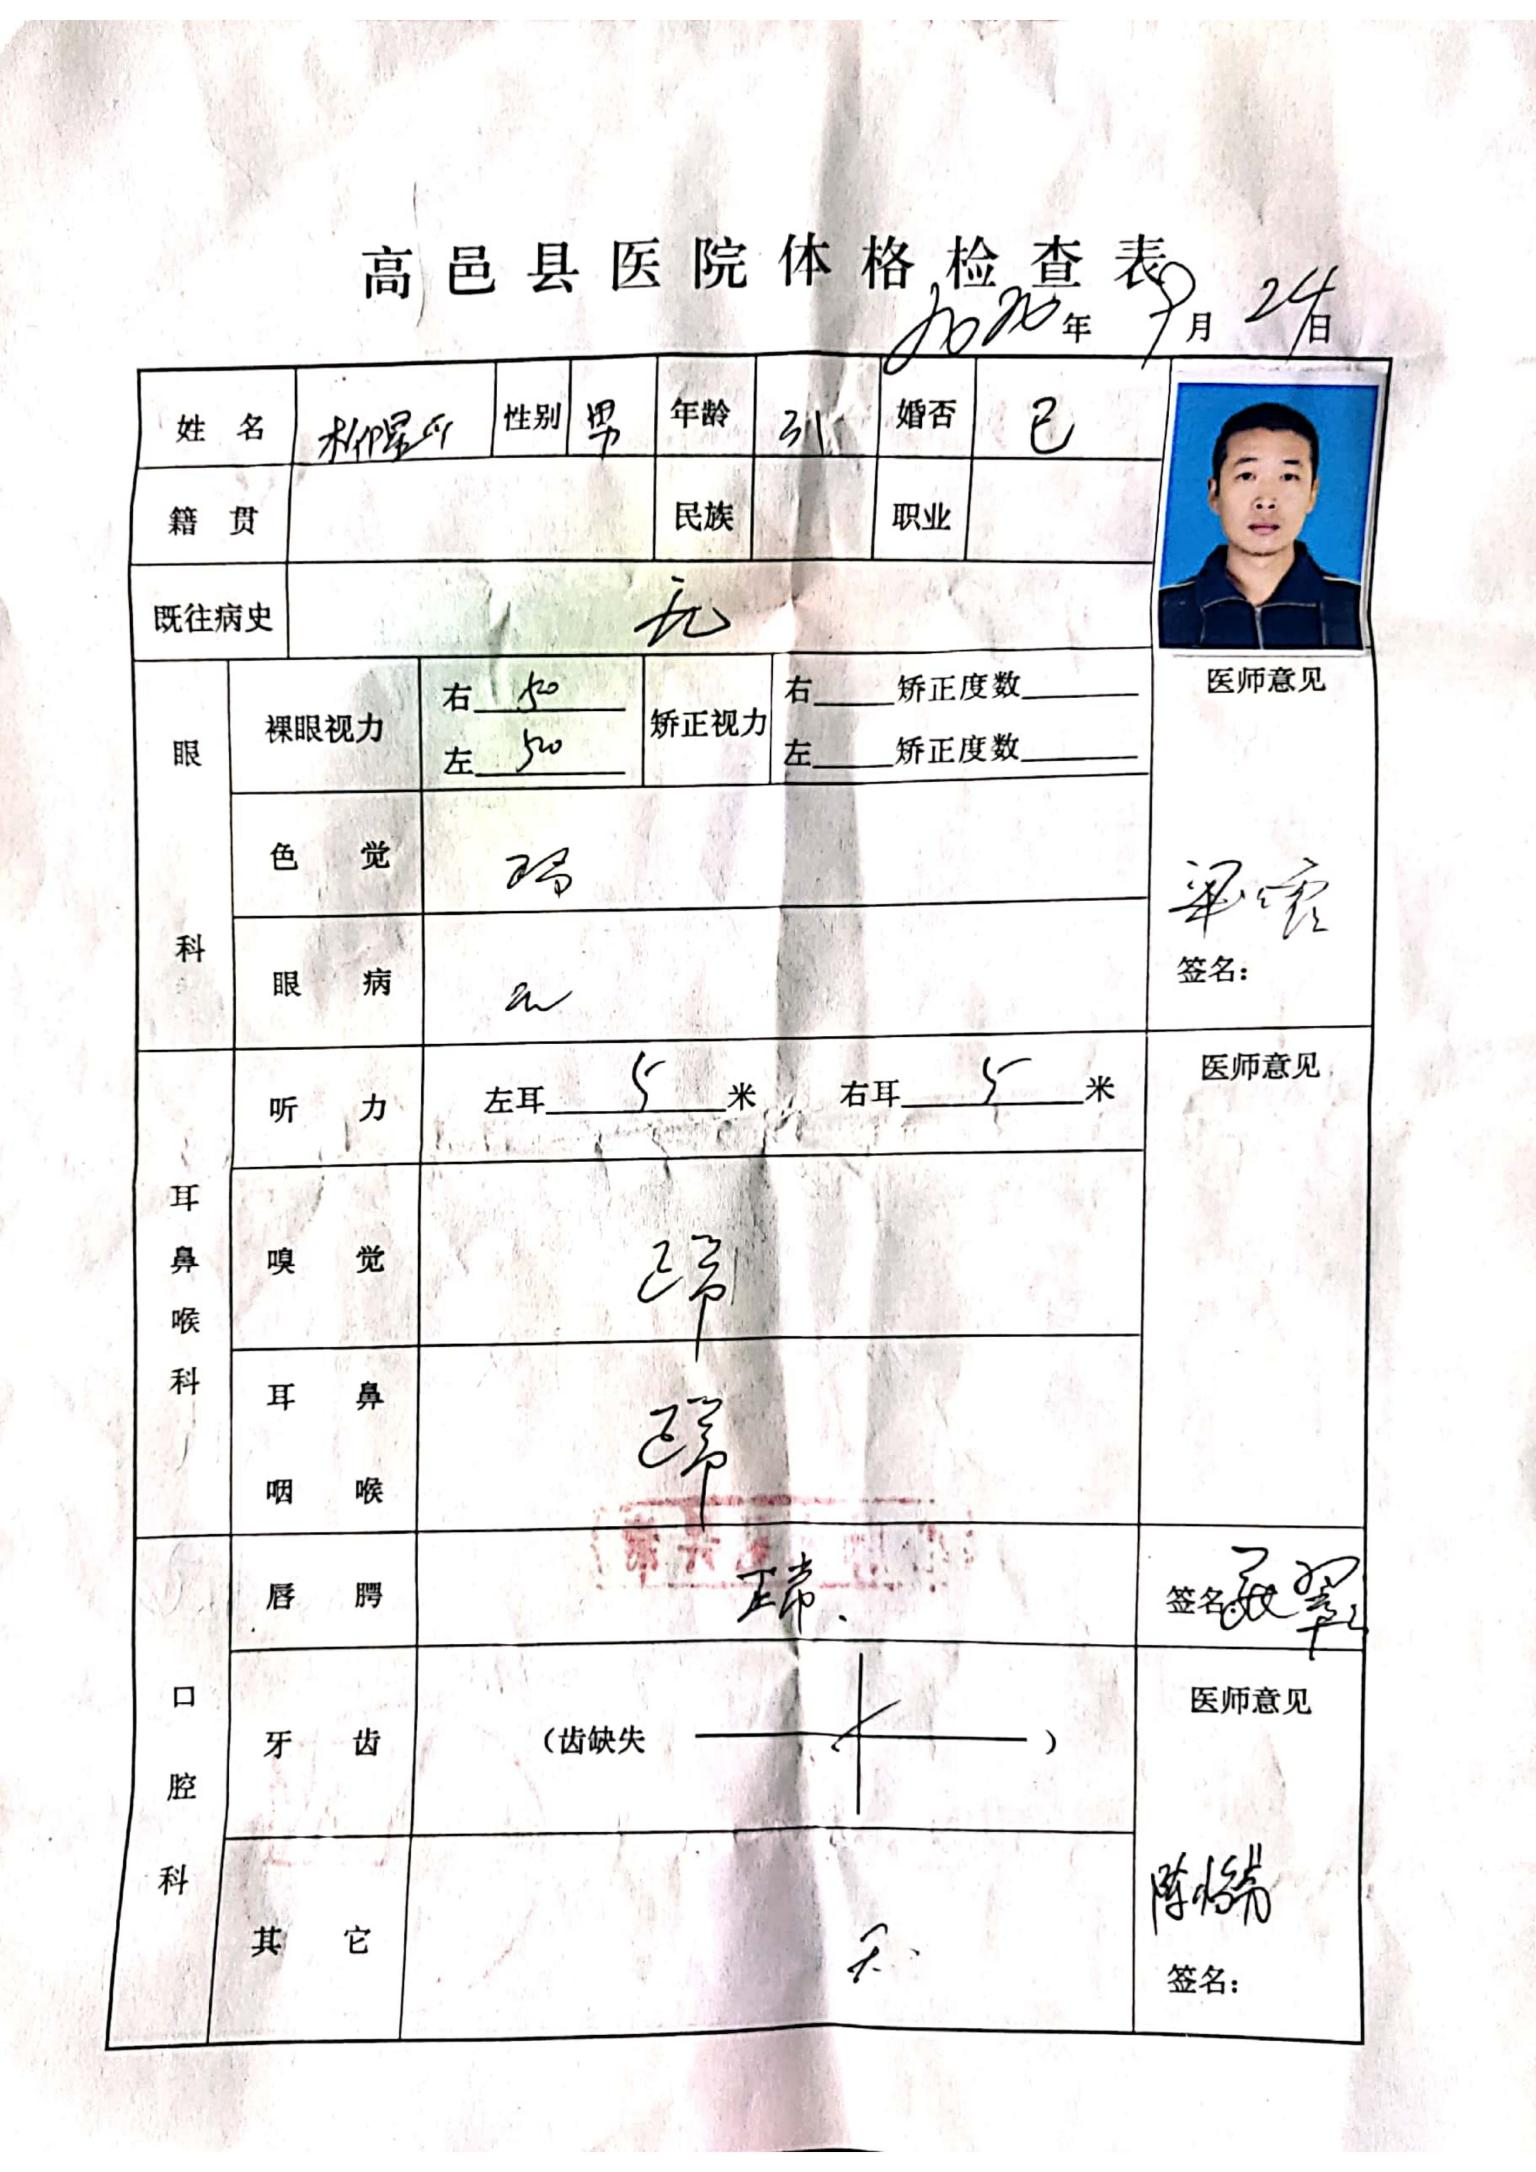 高邑县医院体格检查表
2020年9月24日
姓名 性别 男 年龄 31 婚否 已
籍贯 民族 职业
既往病史 无
眼科
裸眼视力 右 5.0 矫正视力 右 矫正度数
左 5.0 左 矫正度数
医师意见
色觉 正常
眼病 无
签名：
耳鼻喉科
听力 左耳 5 米 右耳 5 米
医师意见
嗅觉 正常
耳鼻咽喉 正常
签名：
口腔科
唇腭 正常.
牙齿 （齿缺失 ）
医师意见
其它 无.
签名：